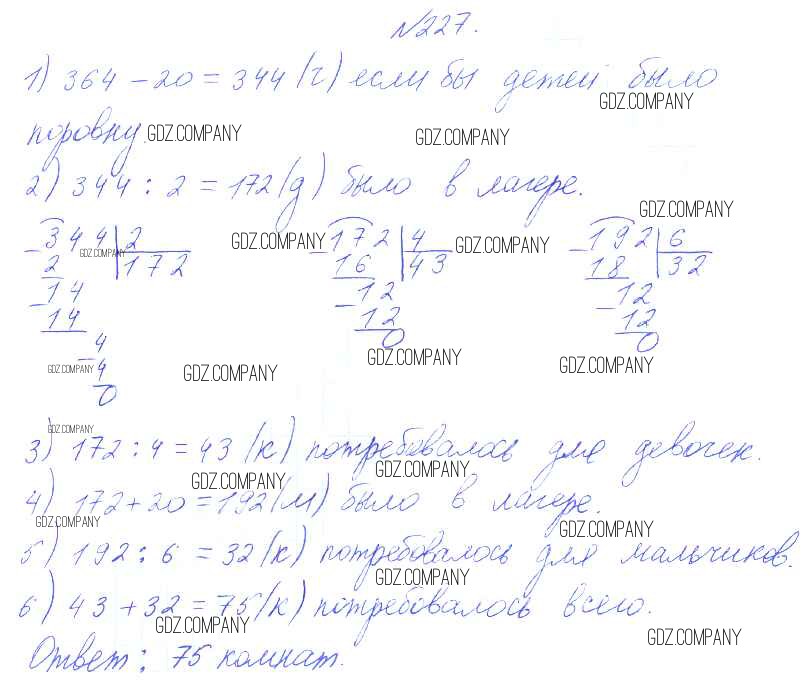 №227.
1) 364 - 20 = 344 (ч) если бы детей было
GDZ.COMPANY
поровну. GDZ.COMPANY GDZ.COMPANY
2) 344 : 2 = 172 (д) было в лагере.
GDZ.COMPANY
344 2 GDZ.COMPANY 172 4 GDZ.COMPANY 192 6
GDZ.COMPANY
2 172 16 43 18 32
14 12 12
14 12 12
4 0 0
GDZ.COMPANY GDZ.COMPANY
GDZ.COMPANY 4 GDZ.COMPANY
0
GDZ.COMPANY
3) 172 : 4 = 43 (к) потребовалось для девочек.
GDZ.COMPANY GDZ.COMPANY
4) 172 + 20 = 192 (м) было в лагере.
GDZ.COMPANY GDZ.COMPANY
5) 192 : 6 = 32 (к) потребовалось для мальчиков.
GDZ.COMPANY
6) 43 + 32 = 75 (к) потребовалось всего.
GDZ.COMPANY GDZ.COMPANY
Ответ: 75 комнат.